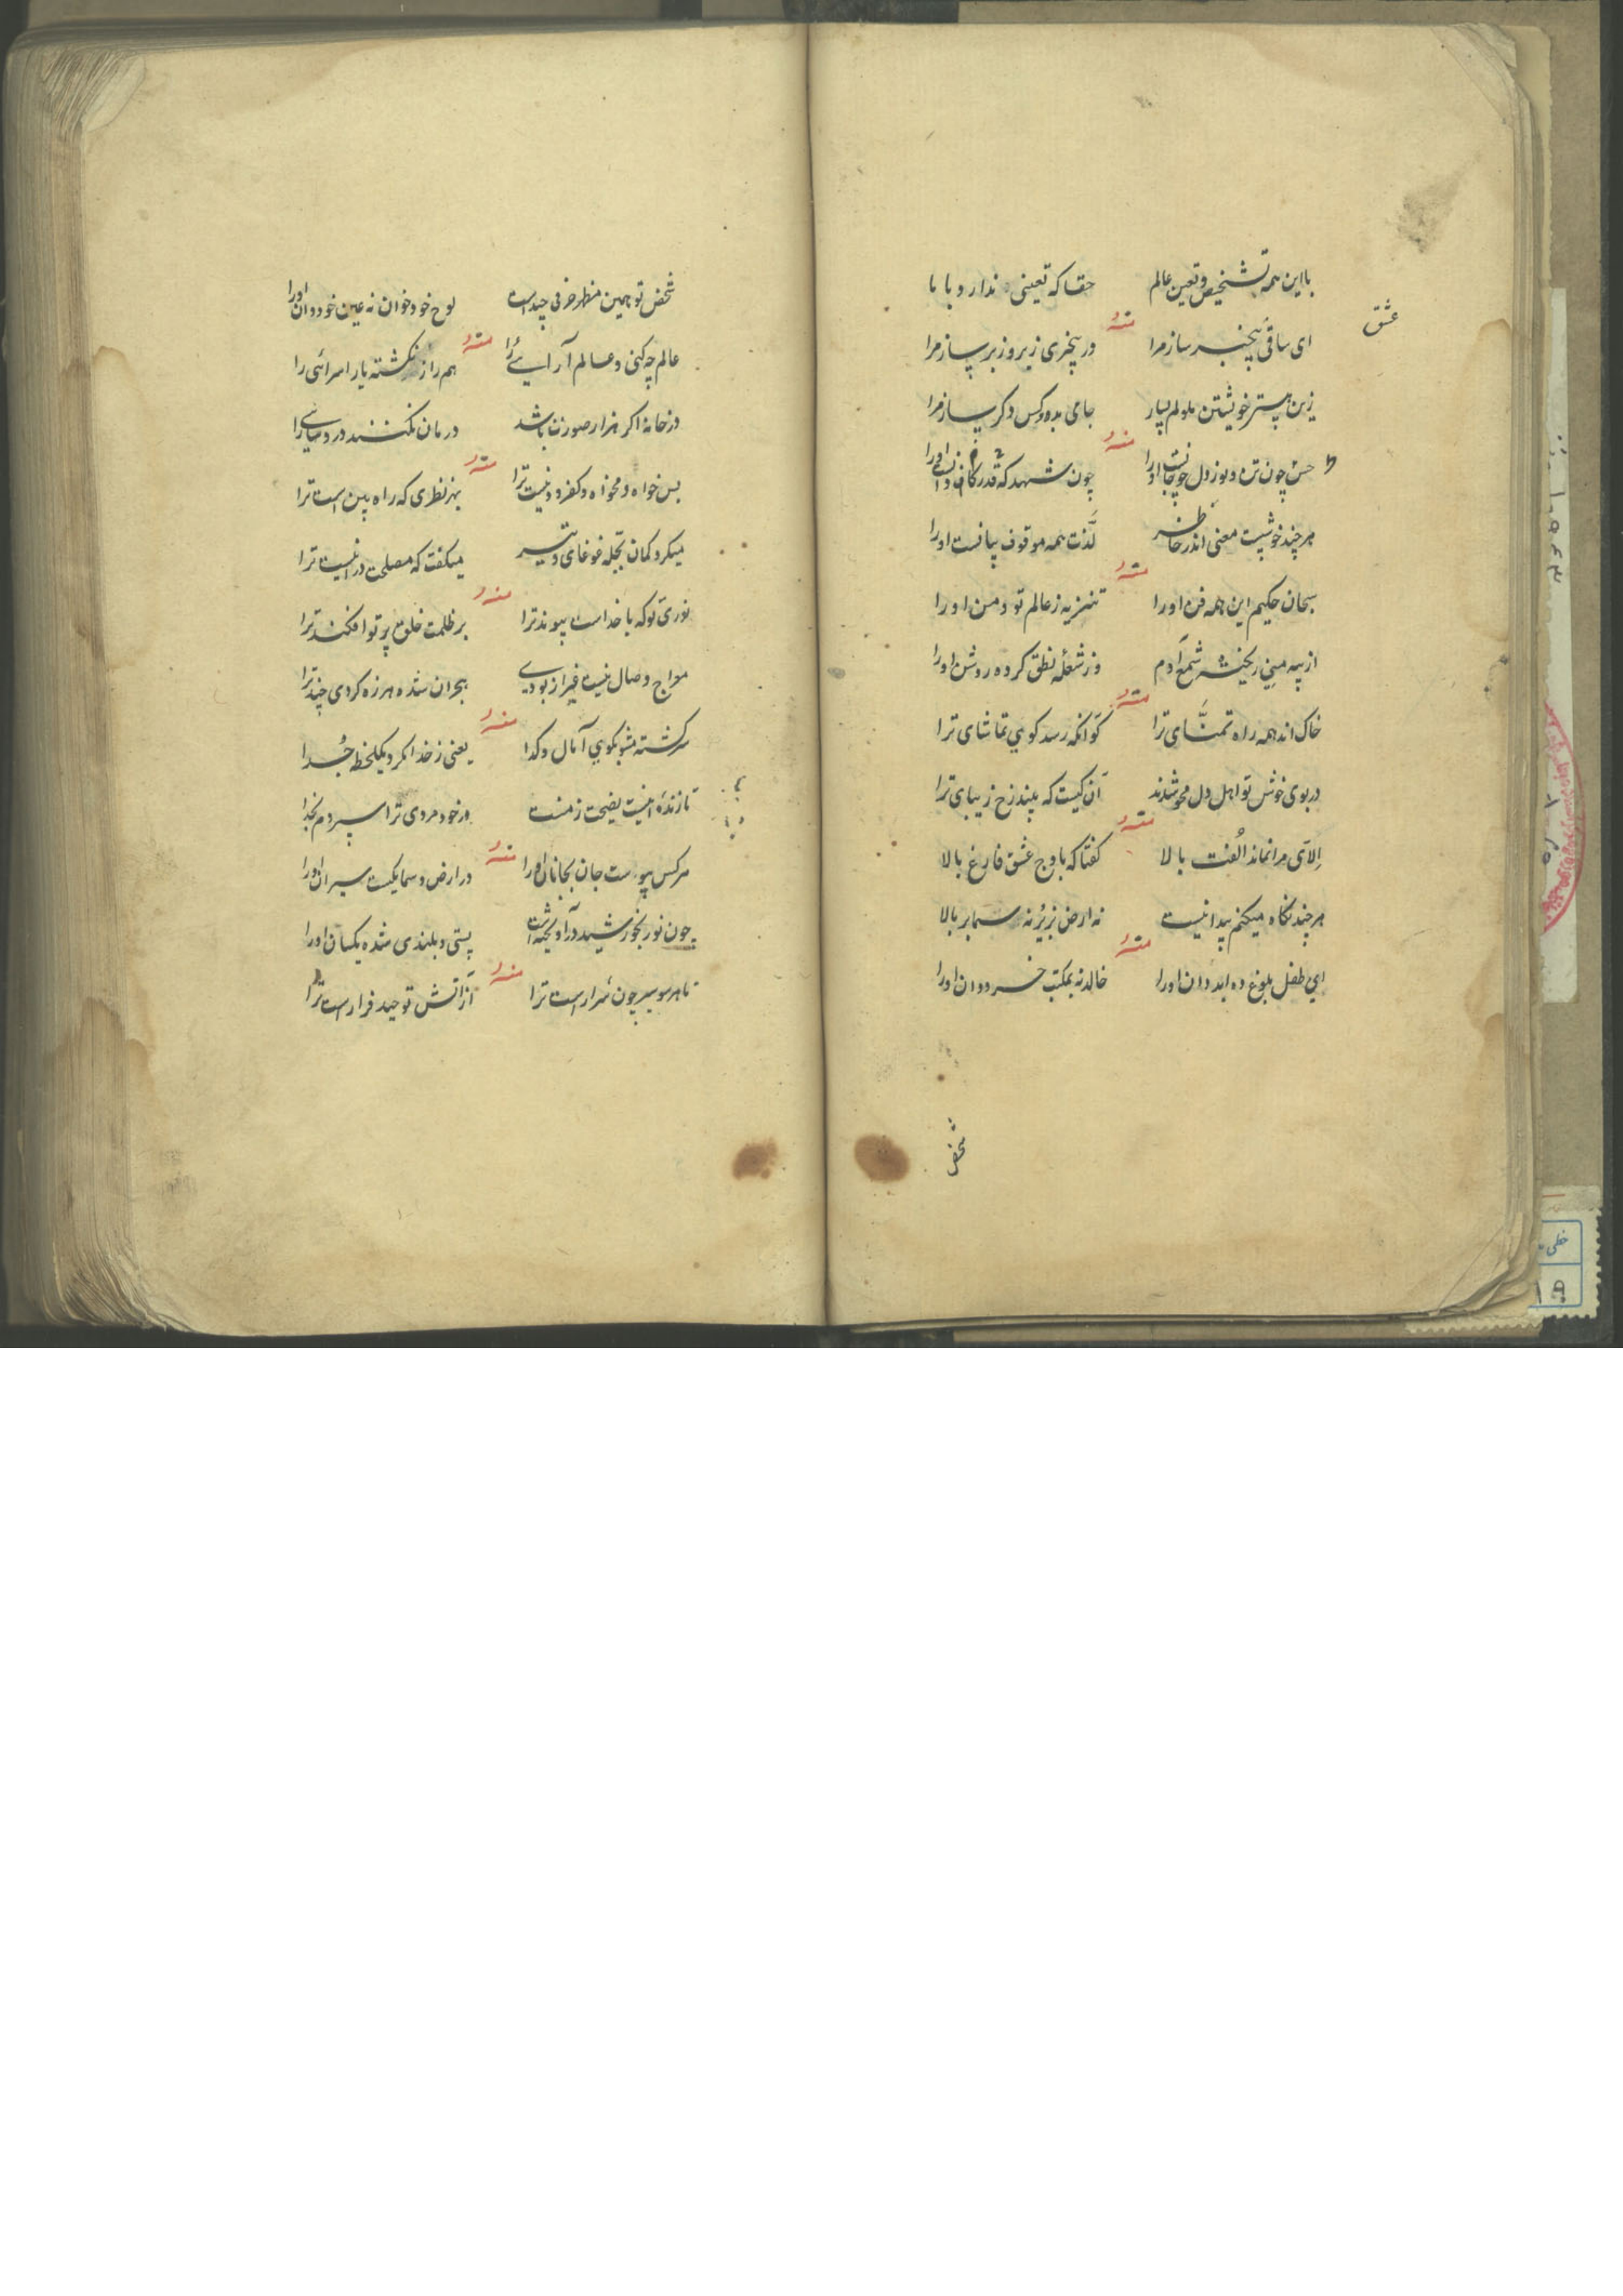 عشق
با این همه تشخیص و تعین عالم حقا که تعینی ندارد با ما
منه
ای ساقی بیخبر ساز مرا در بیخبری زیر و زبر ساز مرا
زین بیشتر خویشتن ملولم بسیار جامی بده و کس دگر ساز مرا
منه
حسن چون تن و سوز دل چو جانست او را چون شهد که قدر
هر چند خوشیست معنی اندر خاطر لذت همه موقوف بیانست او را
منه
سبحان حکیم این همه فن او را تنزیه ز عالم تو و من او را
از پیه منی ریخته شمع آدم وز شعلهٔ نطق کرده روشن او را
منه
خاک اند همه راه تمنّای ترا کو آنکه رسد کوی تماشای ترا
در بوی خوش تو اهل دل محو شدند آن کیست که بیند رخ زیبای ترا
منه
الآی مرا نماند الفت بالا گفتا که باوج عشق فارغ بالا
هر چند نگاه میکنم پیدا نیست نه ارض بزیر نه سما بر بالا
منه
ای طفل بلوغ ده ابد دان او را خالد نه بمکتب خرد دان او را
شخص
شخص تو همین منظر حرفی چند است لوح خود خوان نه عین خود دان او را
منه
عالم چه کنی و عالم آرایی را هم راز نگشته یار امرائی را
در خانه اگر هزار صورت باشد درمان نکنند درد تنهایی را
منه
بس خواه و مخواه و کفر و دینست ترا بهر نظری که راه بین است ترا
میکرد کمان بجمله غوغای دو تیر میگفت که مصلحت درینست ترا
منه
نوری تو که با خداست پیوند ترا بر ظلمت خلق پرتو افکند ترا
معراج وصال نیست غیر از بودی هجران شده هرزه کردی چند ترا
منه
سرگشته مشو بکوی آمال و گدا یعنی ز خدا مگرد یکلحظه جدا
تا زندهٔ اینست نصیحت ز منت ور خود مردی ترا سپردم بخدا
منه
هر کس پیوست جان بجانان او را در ارض و سما یکیست سیران او را
چون نور بخورشید در آویخته است پستی و بلندی شده یکسان او را
منه
تا هر سو سیر چون شرار است ترا از آتش توحید فرار است ترا
خطی